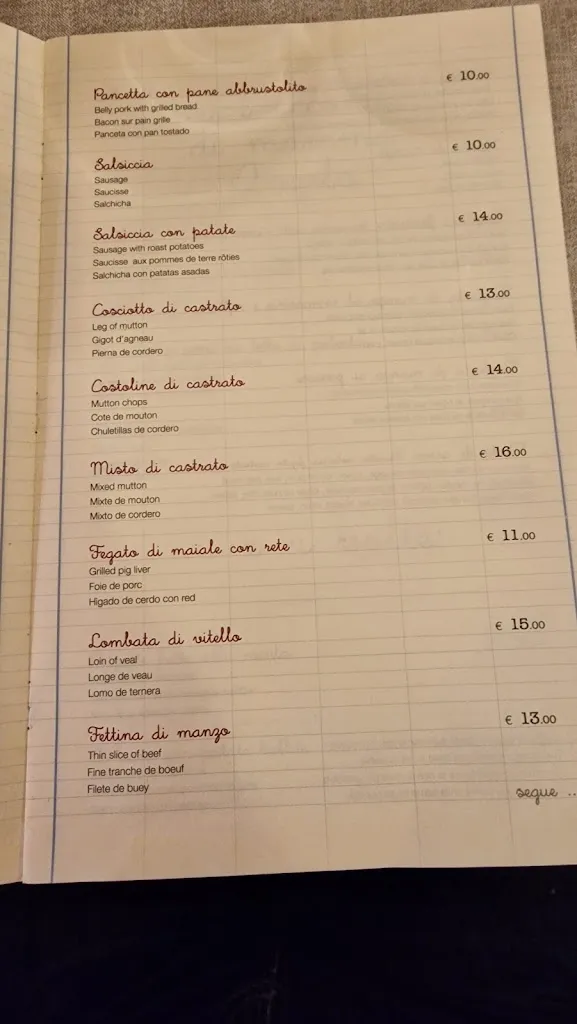 Pancetta con pane abbrustolito € 10.00
Belly pork with grilled bread
Bacon sur pain grille
Panceta con pan tostado
Salsiccia € 10.00
Sausage
Saucisse
Salchicha
Salsiccia con patate € 14.00
Sausage with roast potatoes
Saucisse aux pommes de terre rôties
Salchicha con patatas asadas
Cosciotto di castrato € 13.00
Leg of mutton
Gigot d'agneau
Pierna de cordero
Costoline di castrato € 14.00
Mutton chops
Cote de mouton
Chuletillas de cordero
Misto di castrato € 16.00
Mixed mutton
Mixte de mouton
Mixto de cordero
Fegato di maiale con rete € 11.00
Grilled pig liver
Foie de porc
Higado de cerdo con red
Lombata di vitello € 15.00
Loin of veal
Longe de veau
Lomo de ternera
Fettina di manzo € 13.00
Thin slice of beef
Fine tranche de boeuf
Filete de buey
segue ..